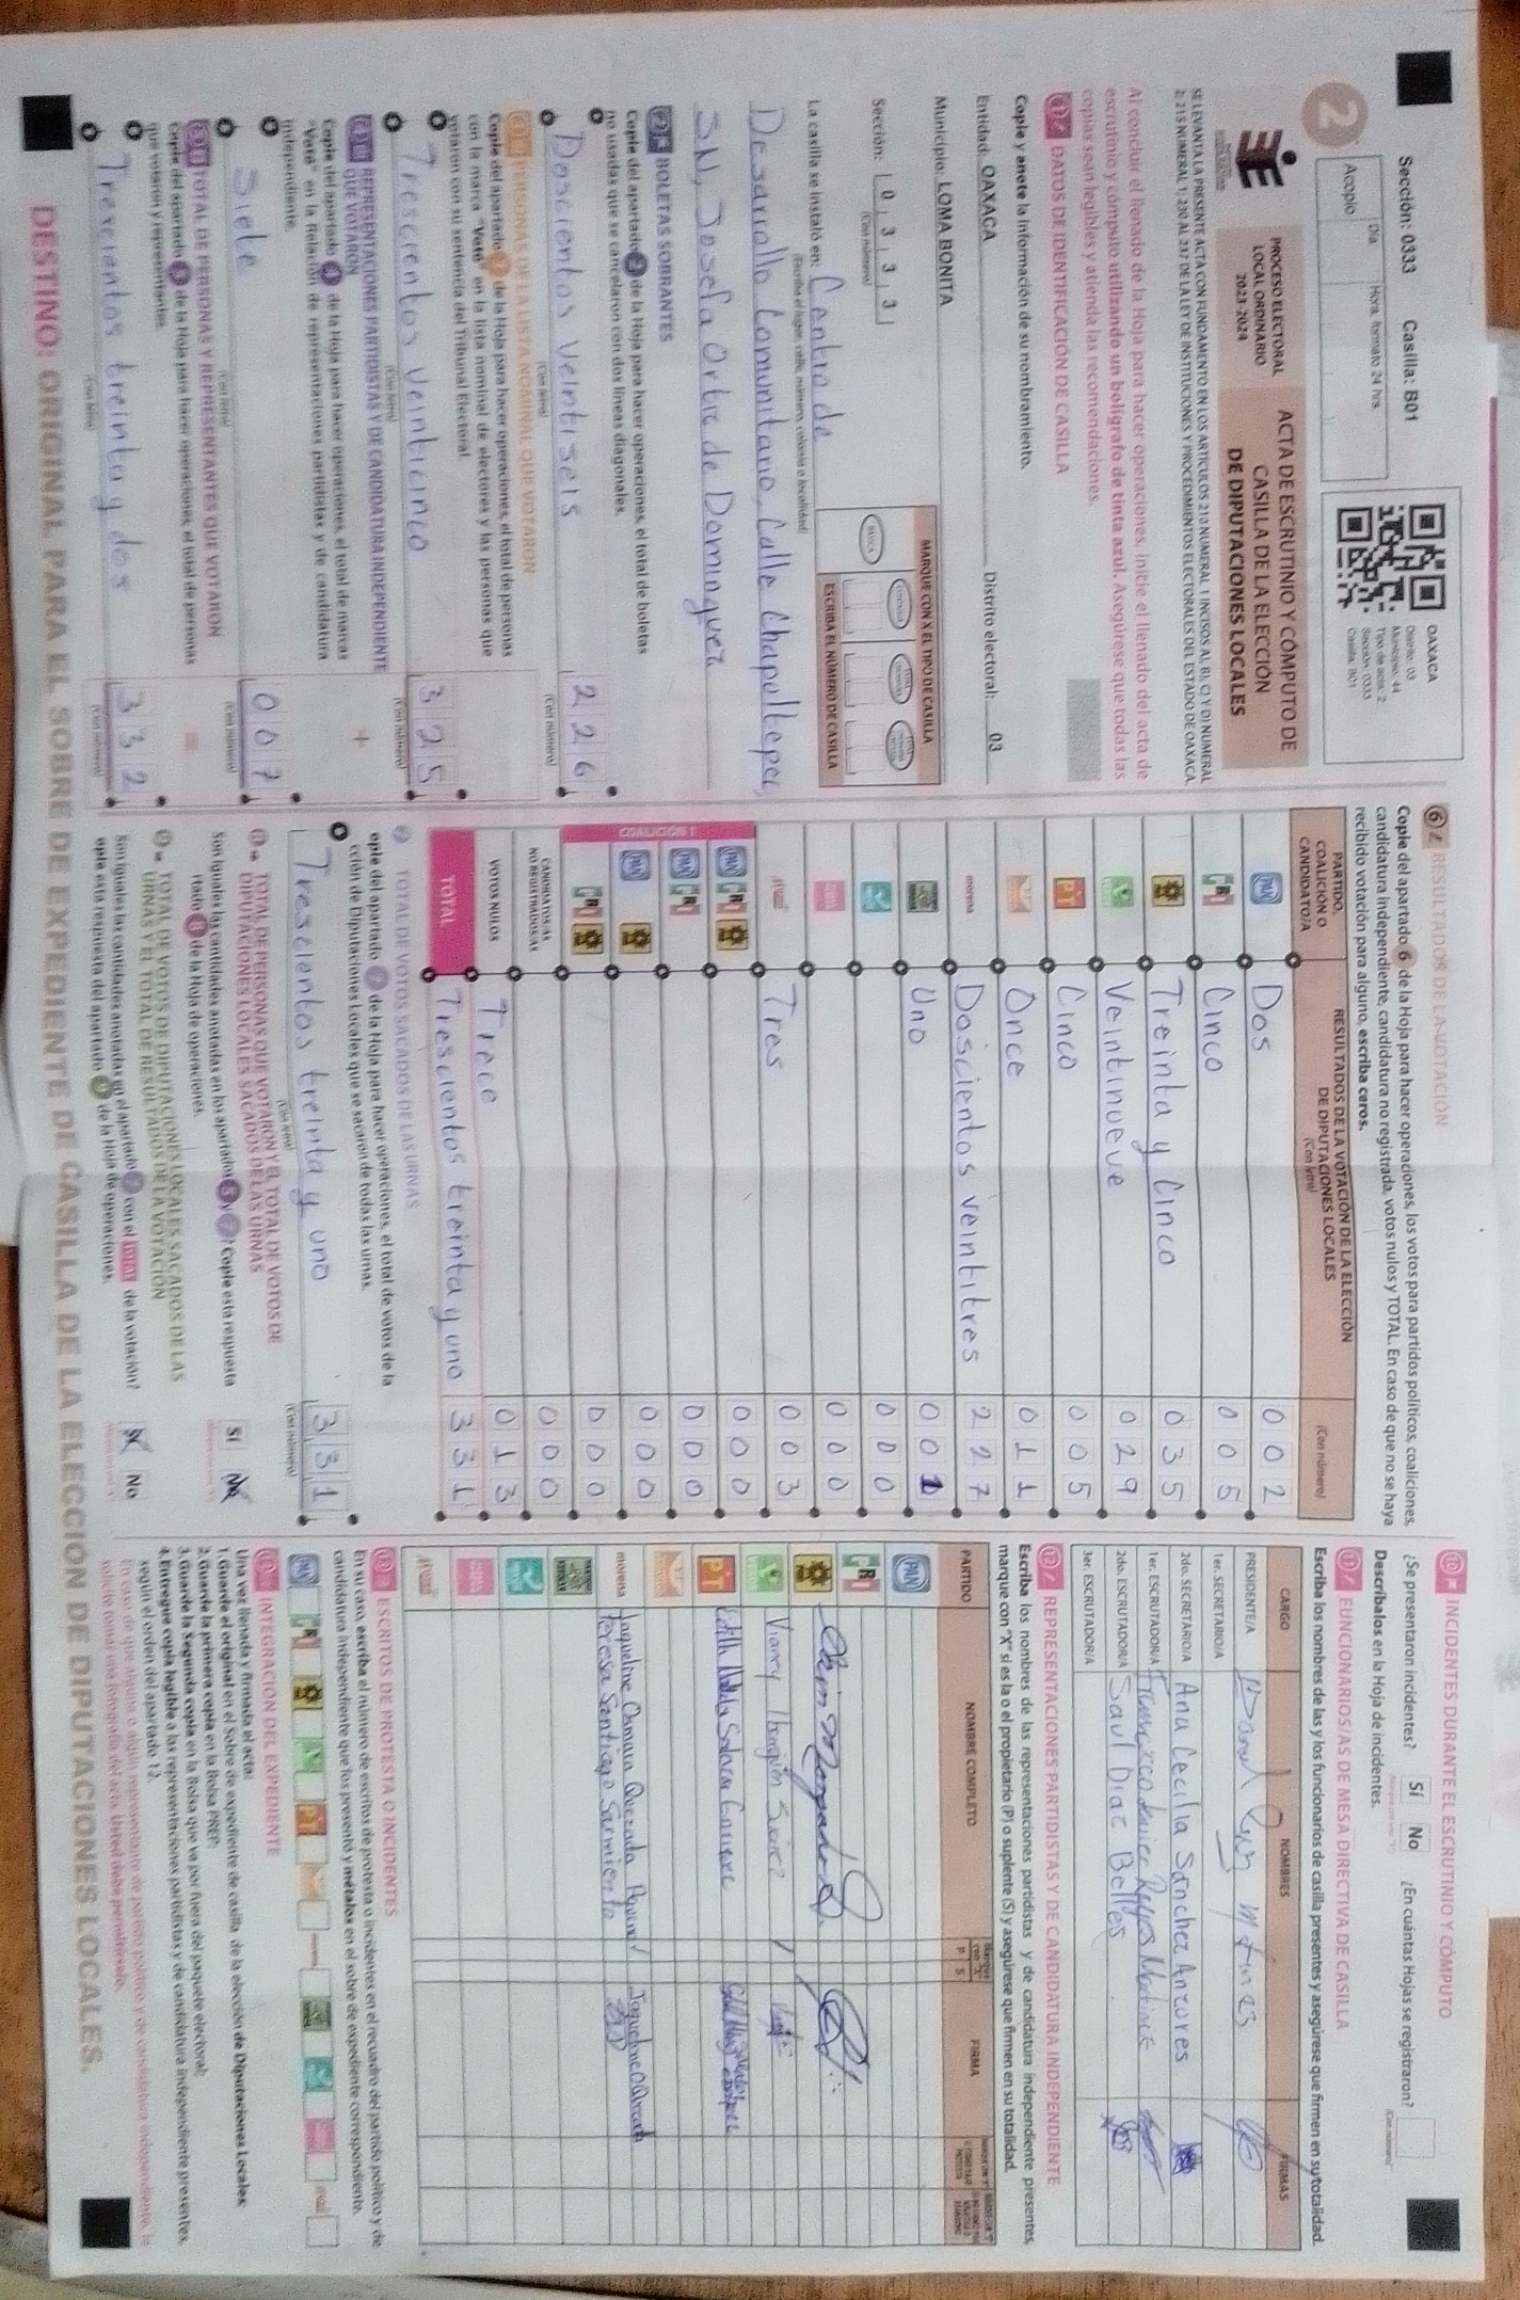 Sección: 0333 Casilla: B01
Día Hora, formato 24 hrs.
Acopio
OAXACA
Distrito: 03
Municipio: 44
Tipo de acta: 2
Sección: 0333
Casilla: B01
2
PROCESO ELECTORAL
LOCAL ORDINARIO
2023-2024
ACTA DE ESCRUTINIO Y CÓMPUTO DE
CASILLA DE LA ELECCIÓN
DE DIPUTACIONES LOCALES
SE LEVANTA LA PRESENTE ACTA CON FUNDAMENTO EN LOS ARTÍCULOS 210 NUMERAL 1 INCISOS A), B), C) Y D) NUMERAL
2; 215 NUMERAL 1; 230 AL 237 DE LA LEY DE INSTITUCIONES Y PROCEDIMIENTOS ELECTORALES DEL ESTADO DE OAXACA.
Al concluir el llenado de la Hoja para hacer operaciones, inicie el llenado del acta de
escrutinio y cómputo utilizando un bolígrafo de tinta azul. Asegúrese que todas las
copias sean legibles y atienda las recomendaciones.
1 DATOS DE IDENTIFICACIÓN DE CASILLA
Copie y anote la información de su nombramiento.
Entidad: OAXACA Distrito electoral: 03
Municipio: LOMA BONITA
Sección: 0 3 3 3
(Con número)
MARQUE CON X EL TIPO DE CASILLA
BÁSICA
ESCRIBA EL NÚMERO DE CASILLA
La casilla se instaló en: Centro de
(Escriba el lugar, calle, número, colonia o localidad)
Desarrollo Comunitario, Calle Chapultepec,
SN, Josefa Ortiz de Dominguez
2 BOLETAS SOBRANTES
Copie del apartado 2 de la Hoja para hacer operaciones, el total de boletas
no usadas que se cancelaron con dos líneas diagonales.
Doscientos Veintiseis 2 2 6
(Con letra) (Con número)
3 PERSONAS DE LA LISTA NOMINAL QUE VOTARON
Copie del apartado 3 de la Hoja para hacer operaciones, el total de personas
con la marca "Votó" en la lista nominal de electores y las personas que
votaron con su sentencia del Tribunal Electoral.
Trescientos Veinticinco 3 2 5
(Con letra) (Con número)
4 REPRESENTACIONES PARTIDISTAS Y DE CANDIDATURA INDEPENDIENTE
QUE VOTARON
Copie del apartado 4 de la Hoja para hacer operaciones, el total de marcas
"Votó" en la Relación de representaciones partidistas y de candidatura
independiente.
+
Siete 0 0 7
(Con letra) (Con número)
5 TOTAL DE PERSONAS Y REPRESENTANTES QUE VOTARON
Copie del apartado 5 de la Hoja para hacer operaciones, el total de personas
que votaron y representantes.
=
Trescientos treinta y dos 3 3 2
(Con letra) (Con número)
6 RESULTADOS DE LA VOTACIÓN
Copie del apartado 6 de la Hoja para hacer operaciones, los votos para partidos políticos, coaliciones,
candidatura independiente, candidatura no registrada, votos nulos y TOTAL. En caso de que no se haya
recibido votación para alguno, escriba ceros.
PARTIDO,
COALICIÓN O
CANDIDATO/A
RESULTADOS DE LA VOTACIÓN DE LA ELECCIÓN
DE DIPUTACIONES LOCALES
(Con letra) (Con número)
PAN Dos 0 0 2
PRI Cinco 0 0 5
PRD Treinta y Cinco 0 3 5
Veintinueve 0 2 9
PT Cinco 0 0 5
Once 0 1 1
morena Doscientos veintitres 2 2 7
Uno 0 0 1
0 0 0
0 0 0
Tres 0 0 3
COALICIÓN 1
PAN PRI PRD 0 0 0
PAN PRI 0 0 0
PAN PRD 0 0 0
PRI PRD 0 0 0
CANDIDATOS/AS
NO REGISTRADOS/AS 0 0 0
VOTOS NULOS Trece 0 1 3
TOTAL Trescientos treinta y uno 3 3 1
7 TOTAL DE VOTOS SACADOS DE LAS URNAS
Copie del apartado 7 de la Hoja para hacer operaciones, el total de votos de la
elección de Diputaciones Locales que se sacaron de todas las urnas.
Trescientos treinta y uno 3 3 1
(Con letra) (Con número)
8 TOTAL DE PERSONAS QUE VOTARON Y EL TOTAL DE VOTOS DE
DIPUTACIONES LOCALES SACADOS DE LAS URNAS
Son iguales las cantidades anotadas en los apartados 5 y 7? Copie esta respuesta
de la Hoja de operaciones. Sí No
9 TOTAL DE VOTOS DE DIPUTACIONES LOCALES SACADOS DE LAS
URNAS Y EL TOTAL DE RESULTADOS DE LA VOTACIÓN
Son iguales las cantidades anotadas en el apartado 7 con el TOTAL de la votación?
Copie esta respuesta del apartado 9 de la Hoja de operaciones. Sí No
10 INCIDENTES DURANTE EL ESCRUTINIO Y CÓMPUTO
¿Se presentaron incidentes? Sí No ¿En cuántas Hojas se registraron?
(Con número)
Descríbalos en la Hoja de incidentes.
11 FUNCIONARIOS/AS DE MESA DIRECTIVA DE CASILLA
Escriba los nombres de las y los funcionarios de casilla presentes y asegúrese que firmen en su totalidad.
CARGO NOMBRES FIRMAS
PRESIDENTE/A
1er. SECRETARIO/A
2do. SECRETARIO/A Ana Cecilia Sánchez Anzures
1er. ESCRUTADOR/A
2do. ESCRUTADOR/A Saul Diaz Belles
3er. ESCRUTADOR/A
12 REPRESENTACIONES PARTIDISTAS Y DE CANDIDATURA INDEPENDIENTE
Escriba los nombres de las representaciones partidistas y de candidatura independiente presentes,
marque con "X" si es la o el propietario (P) o suplente (S) y asegúrese que firmen en su totalidad.
PARTIDO NOMBRE COMPLETO P S FIRMA
PAN
PRI
PRD
PT
morena
Teresa Santiago Sarmiento
13 ESCRITOS DE PROTESTA O INCIDENTES
En su caso, escriba el número de escritos de protesta o incidentes en el recuadro del partido político y de
candidatura independiente que los presentó y métalos en el sobre de expediente correspondiente.
PAN PRI PRD PT
14 INTEGRACIÓN DEL EXPEDIENTE
Una vez llenada y firmada el acta:
1. Guarde el original en el Sobre de expediente de casilla de la elección de Diputaciones Locales;
2. Guarde la primera copia en la Bolsa PREP;
3. Guarde la segunda copia en la Bolsa que va por fuera del paquete electoral;
4. Entregue copia legible a las representaciones partidistas y de candidatura independiente presentes,
según el orden del apartado 12.
En caso de que alguna o algún representante de partido político y de candidatura independiente, le
solicite tomar una fotografía del acta, Usted debe permitírselo.
DESTINO: ORIGINAL PARA EL SOBRE DE EXPEDIENTE DE CASILLA DE LA ELECCIÓN DE DIPUTACIONES LOCALES.